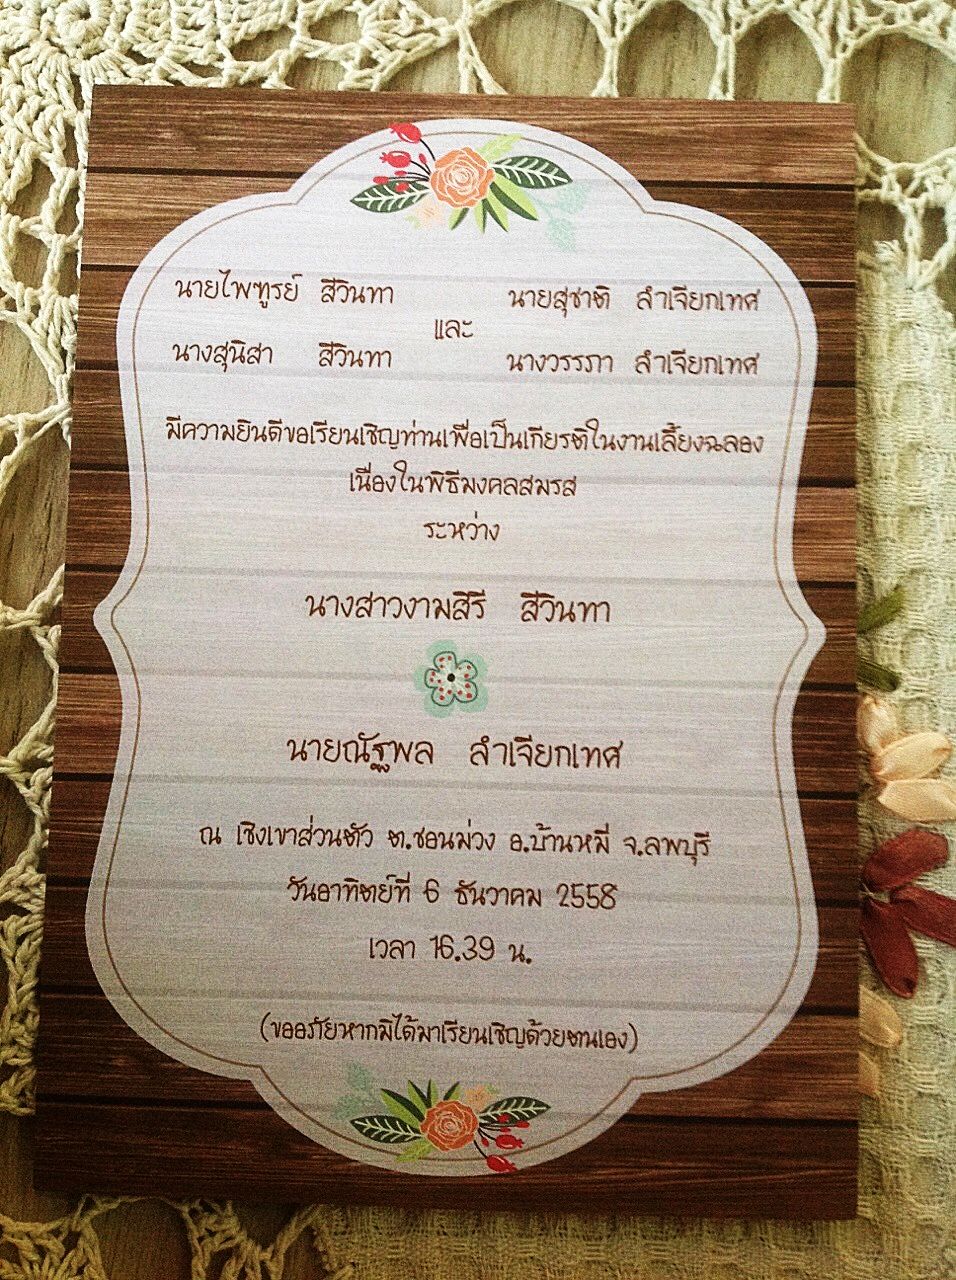 นายไพฑูรย์ สีวินทา นายสุชาติ ลำเจียกเทศ
และ
นางสุนิสา สีวินทา นางวรรภา ลำเจียกเทศ
มีความยินดีขอเรียนเชิญท่านเพื่อเป็นเกียรติในงานเลี้ยงฉลอง
เนื่องในพิธีมงคลสมรส
ระหว่าง
นางสาวงามสิรี สีวินทา
นายณัฐพล ลำเจียกเทศ
ณ เชิงเขาส่วนตัว ต.ชอนม่วง อ.บ้านหมี่ จ.ลพบุรี
วันอาทิตย์ที่ 6 ธันวาคม 2558
เวลา 16.39 น.
(ขออภัยหากมิได้มาเรียนเชิญด้วยตนเอง)